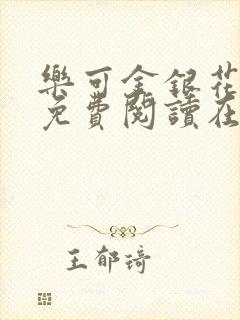 樂可金銀花
免費閱讀在
王郁琦